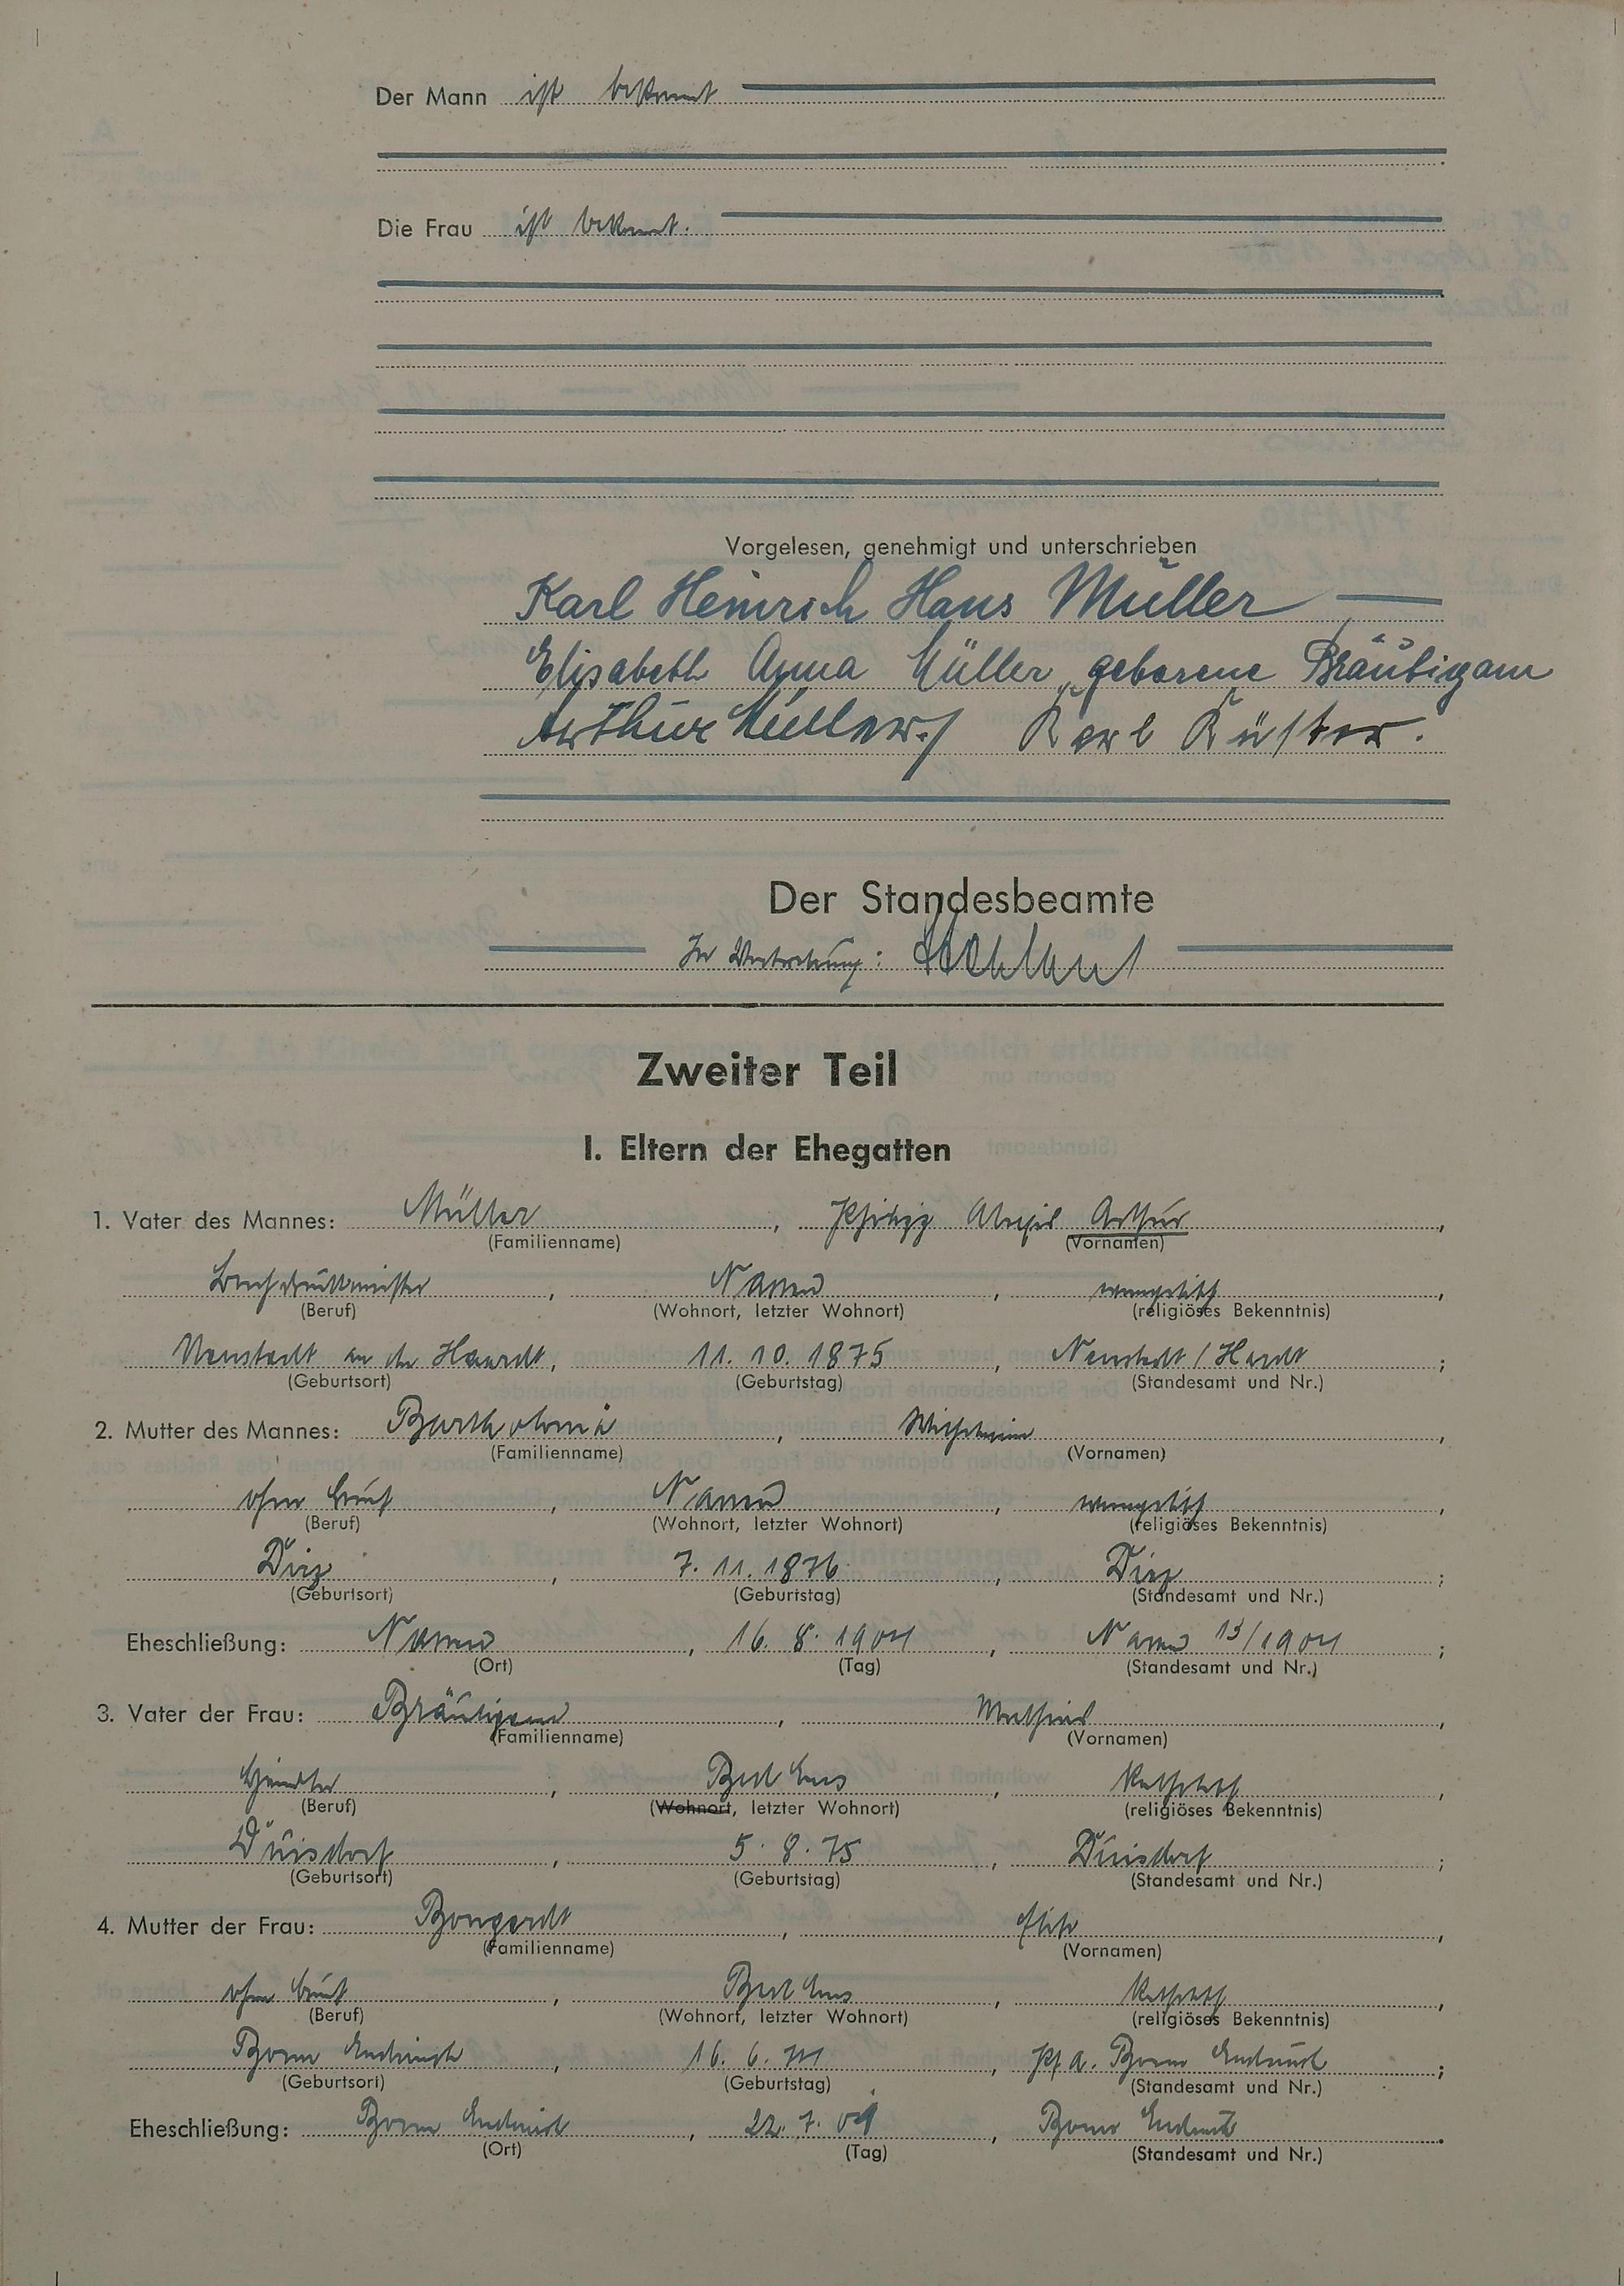 Der Mann ist bekannt
Die Frau ist bekannt.
Vorgelesen, genehmigt und unterschrieben
Karl Heinrich Hans Müller
Elisabeth Anna Müller, geborene Bräutigam
Arthur Müller. Karl Küster.
Der Standesbeamte
In Vertretung:
Zweiter Teil
I. Eltern der Ehegatten
1. Vater des Mannes: Müller, Arthur,
(Familienname) (Vornamen)
Buchdruckmeister, Nassau, evangelisch,
(Beruf) (Wohnort, letzter Wohnort) (religiöses Bekenntnis)
Neustadt an der Haardt, 11. 10. 1875, Neustadt / Hardt;
(Geburtsort) (Geburtstag) (Standesamt und Nr.)
2. Mutter des Mannes: Bartholomä, Wilhelmine,
(Familienname) (Vornamen)
ohne Beruf, Nassau, evangelisch,
(Beruf) (Wohnort, letzter Wohnort) (religiöses Bekenntnis)
Diez, 7. 11. 1876, Diez;
(Geburtsort) (Geburtstag) (Standesamt und Nr.)
Eheschließung: Nassau, 16. 8. 1904, Nassau 13/1904;
(Ort) (Tag) (Standesamt und Nr.)
3. Vater der Frau: Bräutigam, Mathias,
(Familienname) (Vornamen)
Händler, Bad Ems, katholisch,
(Beruf) (Wohnort, letzter Wohnort) (religiöses Bekenntnis)
Duisdorf, 5. 8. 75, Duisdorf;
(Geburtsort) (Geburtstag) (Standesamt und Nr.)
4. Mutter der Frau: Bongardt,
(Familienname) (Vornamen)
ohne Beruf, Bad Ems, katholisch,
(Beruf) (Wohnort, letzter Wohnort) (religiöses Bekenntnis)
Bonn Endenich, 16. 6., St. A. Bonn Endenich;
(Geburtsort) (Geburtstag) (Standesamt und Nr.)
Eheschließung: Bonn Endenich, 22. 7., Bonn Endenich.
(Ort) (Tag) (Standesamt und Nr.)